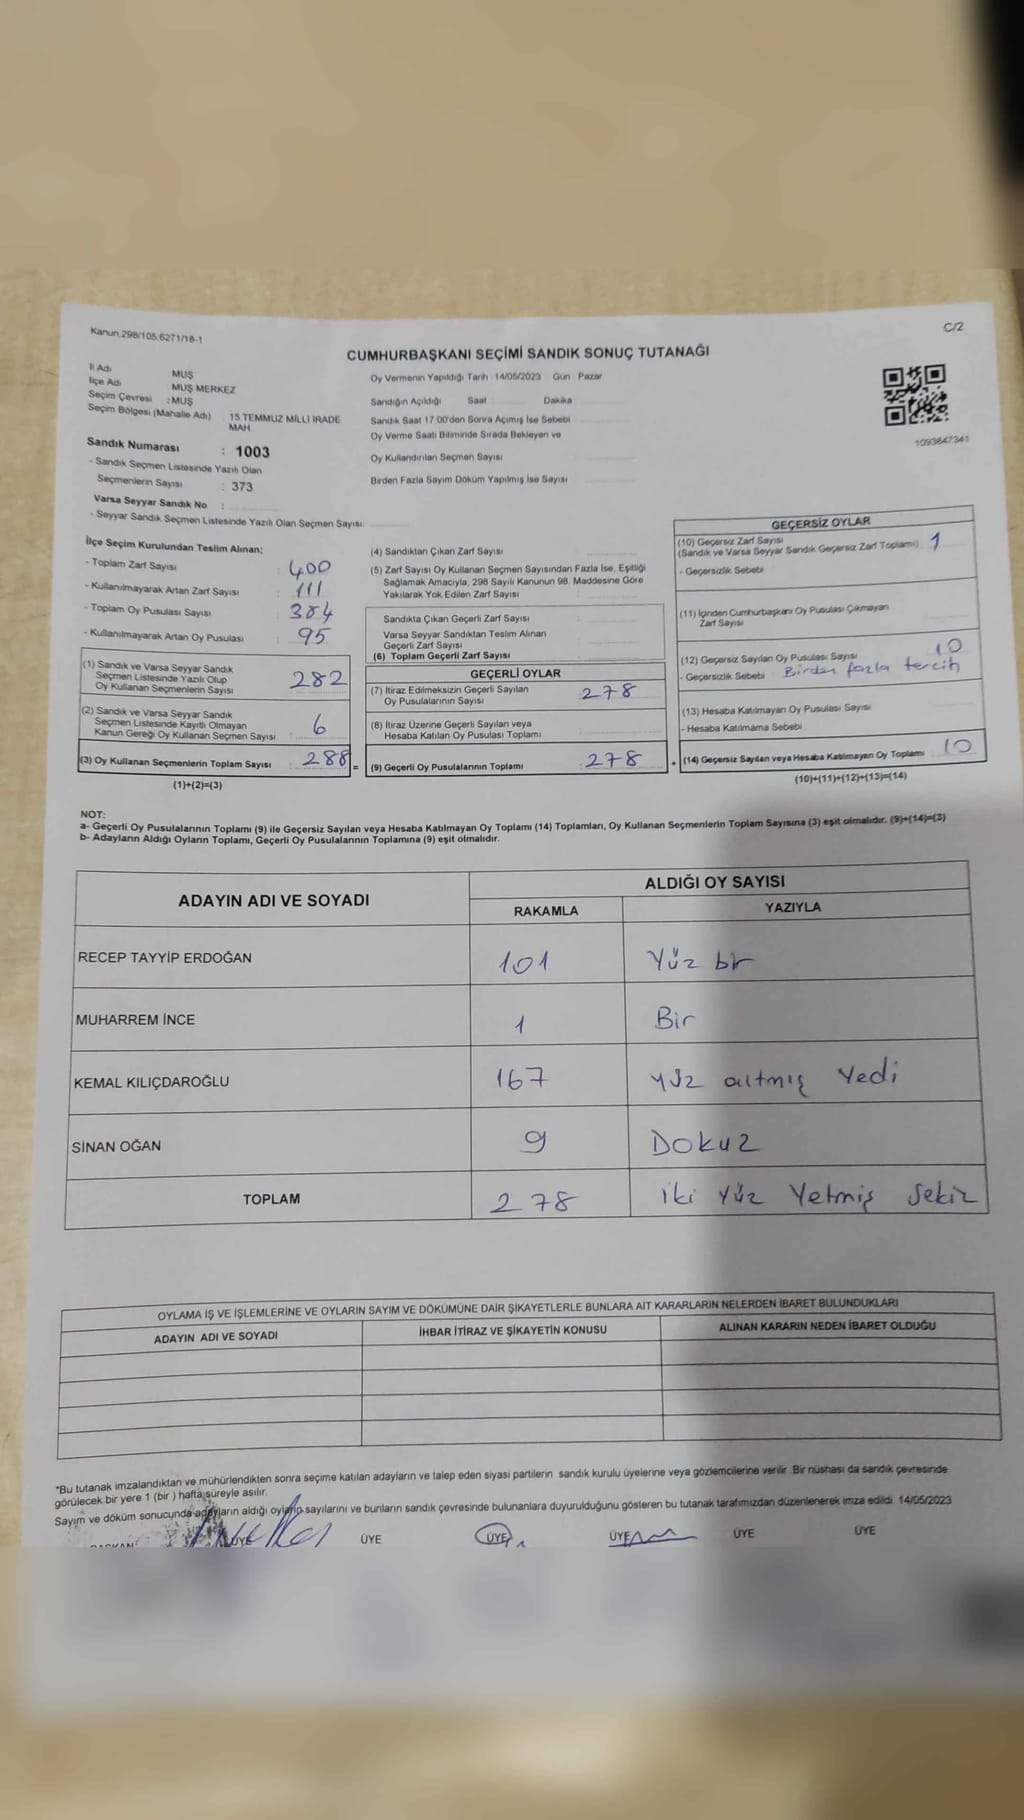 Kanun.298/105.6271/18-1
C/2
CUMHURBAŞKANI SEÇİMİ SANDIK SONUÇ TUTANAĞI
İl Adı MUŞ
İlçe Adı MUŞ MERKEZ
Seçim Çevresi :MUŞ
Seçim Bölgesi (Mahalle Adı) 15 TEMMUZ MİLLİ İRADE MAH.
Sandık Numarası : 1003
- Sandık Seçmen Listesinde Yazılı Olan
Seçmenlerin Sayısı : 373
Varsa Seyyar Sandık No :
- Seyyar Sandık Seçmen Listesinde Yazılı Olan Seçmen Sayısı:
Oy Vermenin Yapıldığı Tarih 14/05/2023 Gün : Pazar
Sandığın Açıldığı Saat Dakika
Sandık Saat 17.00'den Sonra Açımış İse Sebebi
Oy Verme Saati Bitiminde Sırada Bekleyen ve
Oy Kullandırılan Seçmen Sayısı
Birden Fazla Sayım Döküm Yapılmış İse Sayısı
1093647341
İlçe Seçim Kurulundan Teslim Alınan;
- Toplam Zarf Sayısı : 400
- Kullanılmayarak Artan Zarf Sayısı : 111
- Toplam Oy Pusulası Sayısı : 384
- Kullanılmayarak Artan Oy Pusulası : 95
(1) Sandık ve Varsa Seyyar Sandık
Seçmen Listesinde Yazılı Olup
Oy Kullanan Seçmenlerin Sayısı : 282
(2) Sandık ve Varsa Seyyar Sandık
Seçmen Listesinde Kayıtlı Olmayan
Kanun Gereği Oy Kullanan Seçmen Sayısı : 6
(3) Oy Kullanan Seçmenlerin Toplam Sayısı : 288
(1)+(2)=(3)
(4) Sandıktan Çıkan Zarf Sayısı
(5) Zarf Sayısı Oy Kullanan Seçmen Sayısından Fazla İse, Eşitliği
Sağlamak Amacıyla, 298 Sayılı Kanunun 98. Maddesine Göre
Yakılarak Yok Edilen Zarf Sayısı :
Sandıkta Çıkan Geçerli Zarf Sayısı
Varsa Seyyar Sandıktan Teslim Alınan
Geçerli Zarf Sayısı
(6) Toplam Geçerli Zarf Sayısı
GEÇERLİ OYLAR
(7) İtiraz Edilmeksizin Geçerli Sayılan
Oy Pusulalarının Sayısı 278
(8) İtiraz Üzerine Geçerli Sayılan veya
Hesaba Katılan Oy Pusulası Toplamı
= (9) Geçerli Oy Pusulalarının Toplamı : 278
GEÇERSİZ OYLAR
(10) Geçersiz Zarf Sayısı
(Sandık ve Varsa Seyyar Sandık Geçersiz Zarf Toplamı) 1
- Geçersizlik Sebebi
(11) İçinden Cumhurbaşkanı Oy Pusulası Çıkmayan
Zarf Sayısı
(12) Geçersiz Sayılan Oy Pusulası Sayısı 10
- Geçersizlik Sebebi Birden fazla tercih
(13) Hesaba Katılmayan Oy Pusulası Sayısı
- Hesaba Katılmama Sebebi
+ (14) Geçersiz Sayılan veya Hesaba Katılmayan Oy Toplamı 10
(10)+(11)+(12)+(13)=(14)
NOT:
a- Geçerli Oy Pusulalarının Toplamı (9) ile Geçersiz Sayılan veya Hesaba Katılmayan Oy Toplamı (14) Toplamları, Oy Kullanan Seçmenlerin Toplam Sayısına (3) eşit olmalıdır. (9)+(14)=(3)
b- Adayların Aldığı Oyların Toplamı, Geçerli Oy Pusulalarının Toplamına (9) eşit olmalıdır.
ADAYIN ADI VE SOYADI ALDIĞI OY SAYISI
RAKAMLA YAZIYLA
RECEP TAYYİP ERDOĞAN 101 Yüz bir
MUHARREM İNCE 1 Bir
KEMAL KILIÇDAROĞLU 167 yüz altmış yedi
SİNAN OĞAN 9 Dokuz
TOPLAM 278 iki yüz Yetmiş sekiz
OYLAMA İŞ VE İŞLEMLERİNE VE OYLARIN SAYIM VE DÖKÜMÜNE DAİR ŞİKAYETLERLE BUNLARA AİT KARARLARIN NELERDEN İBARET BULUNDUKLARI
ADAYIN ADI VE SOYADI İHBAR İTİRAZ VE ŞİKAYETİN KONUSU ALINAN KARARIN NEDEN İBARET OLDUĞU
*Bu tutanak imzalandıktan ve mühürlendikten sonra seçime katılan adayların ve talep eden siyasi partilerin sandık kurulu üyelerine veya gözlemcilerine verilir. Bir nüshası da sandık çevresinde
görülecek bir yere 1 (bir ) hafta süreyle asılır.
Sayım ve döküm sonucunda adayların aldığı oyların sayılarını ve bunların sandık çevresinde bulunanlara duyurulduğunu gösteren bu tutanak tarafımızdan düzenlenerek imza edildi. 14/05/2023
BAŞKAN ÜYE ÜYE ÜYE ÜYE ÜYE ÜYE